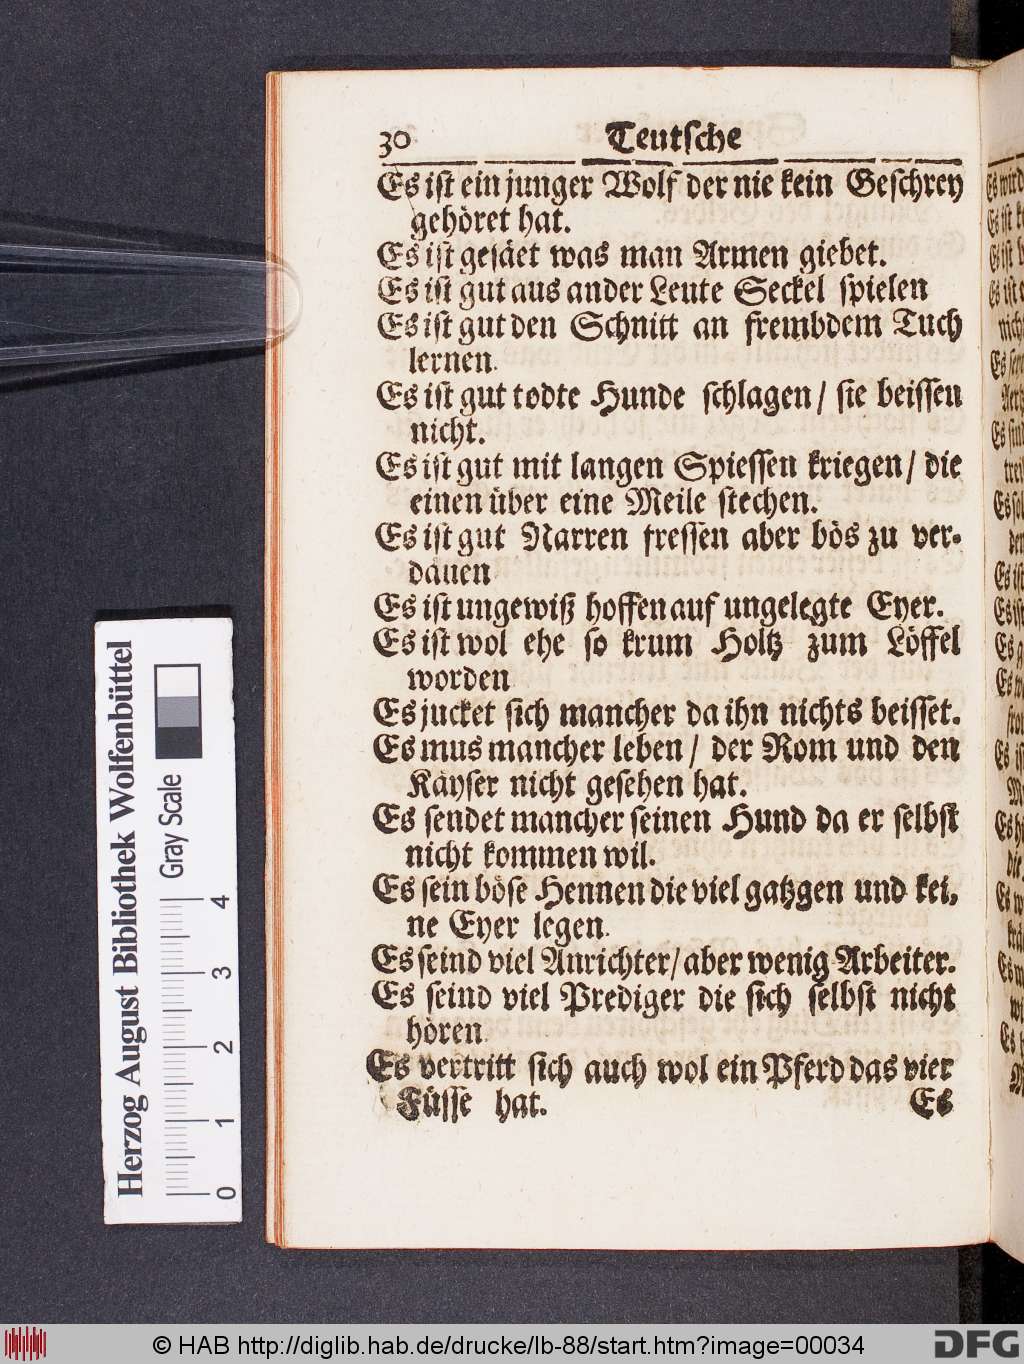 30 Teutsche
Es ist ein junger Wolf der nie kein Geschrey
gehöret hat.
Es ist gesäet was man Armen giebet.
Es ist gut aus ander Leute Seckel spielen
Es ist gut den Schnitt an frembdem Tuch
lernen.
Es ist gut todte Hunde schlagen / sie beissen
nicht.
Es ist gut mit langen Spiessen kriegen / die
einen über eine Meile stechen.
Es ist gut Narren fressen aber bös zu ver-
dauen
Es ist ungewiß hoffen auf ungelegte Eyer.
Es ist wol ehe so krum Holtz zum Löffel
worden
Es jucket sich mancher da ihn nichts beisset.
Es mus mancher leben / der Rom und den
Käyser nicht gesehen hat.
Es sendet mancher seinen Hund da er selbst
nicht kommen wil.
Es sein böse Hennen die viel gatzgen und kei,
ne Eyer legen.
Es seind viel Anrichter / aber wenig Arbeiter.
Es seind viel Prediger die sich selbst nicht
hören.
Es vertritt sich auch wol ein Pferd das vier
Füsse hat. Es
Herzog August Bibliothek Wolfenbüttel
Gray Scale
0 1 2 3 4
© HAB http://diglib.hab.de/drucke/lb-88/start.htm?image=00034
DFG